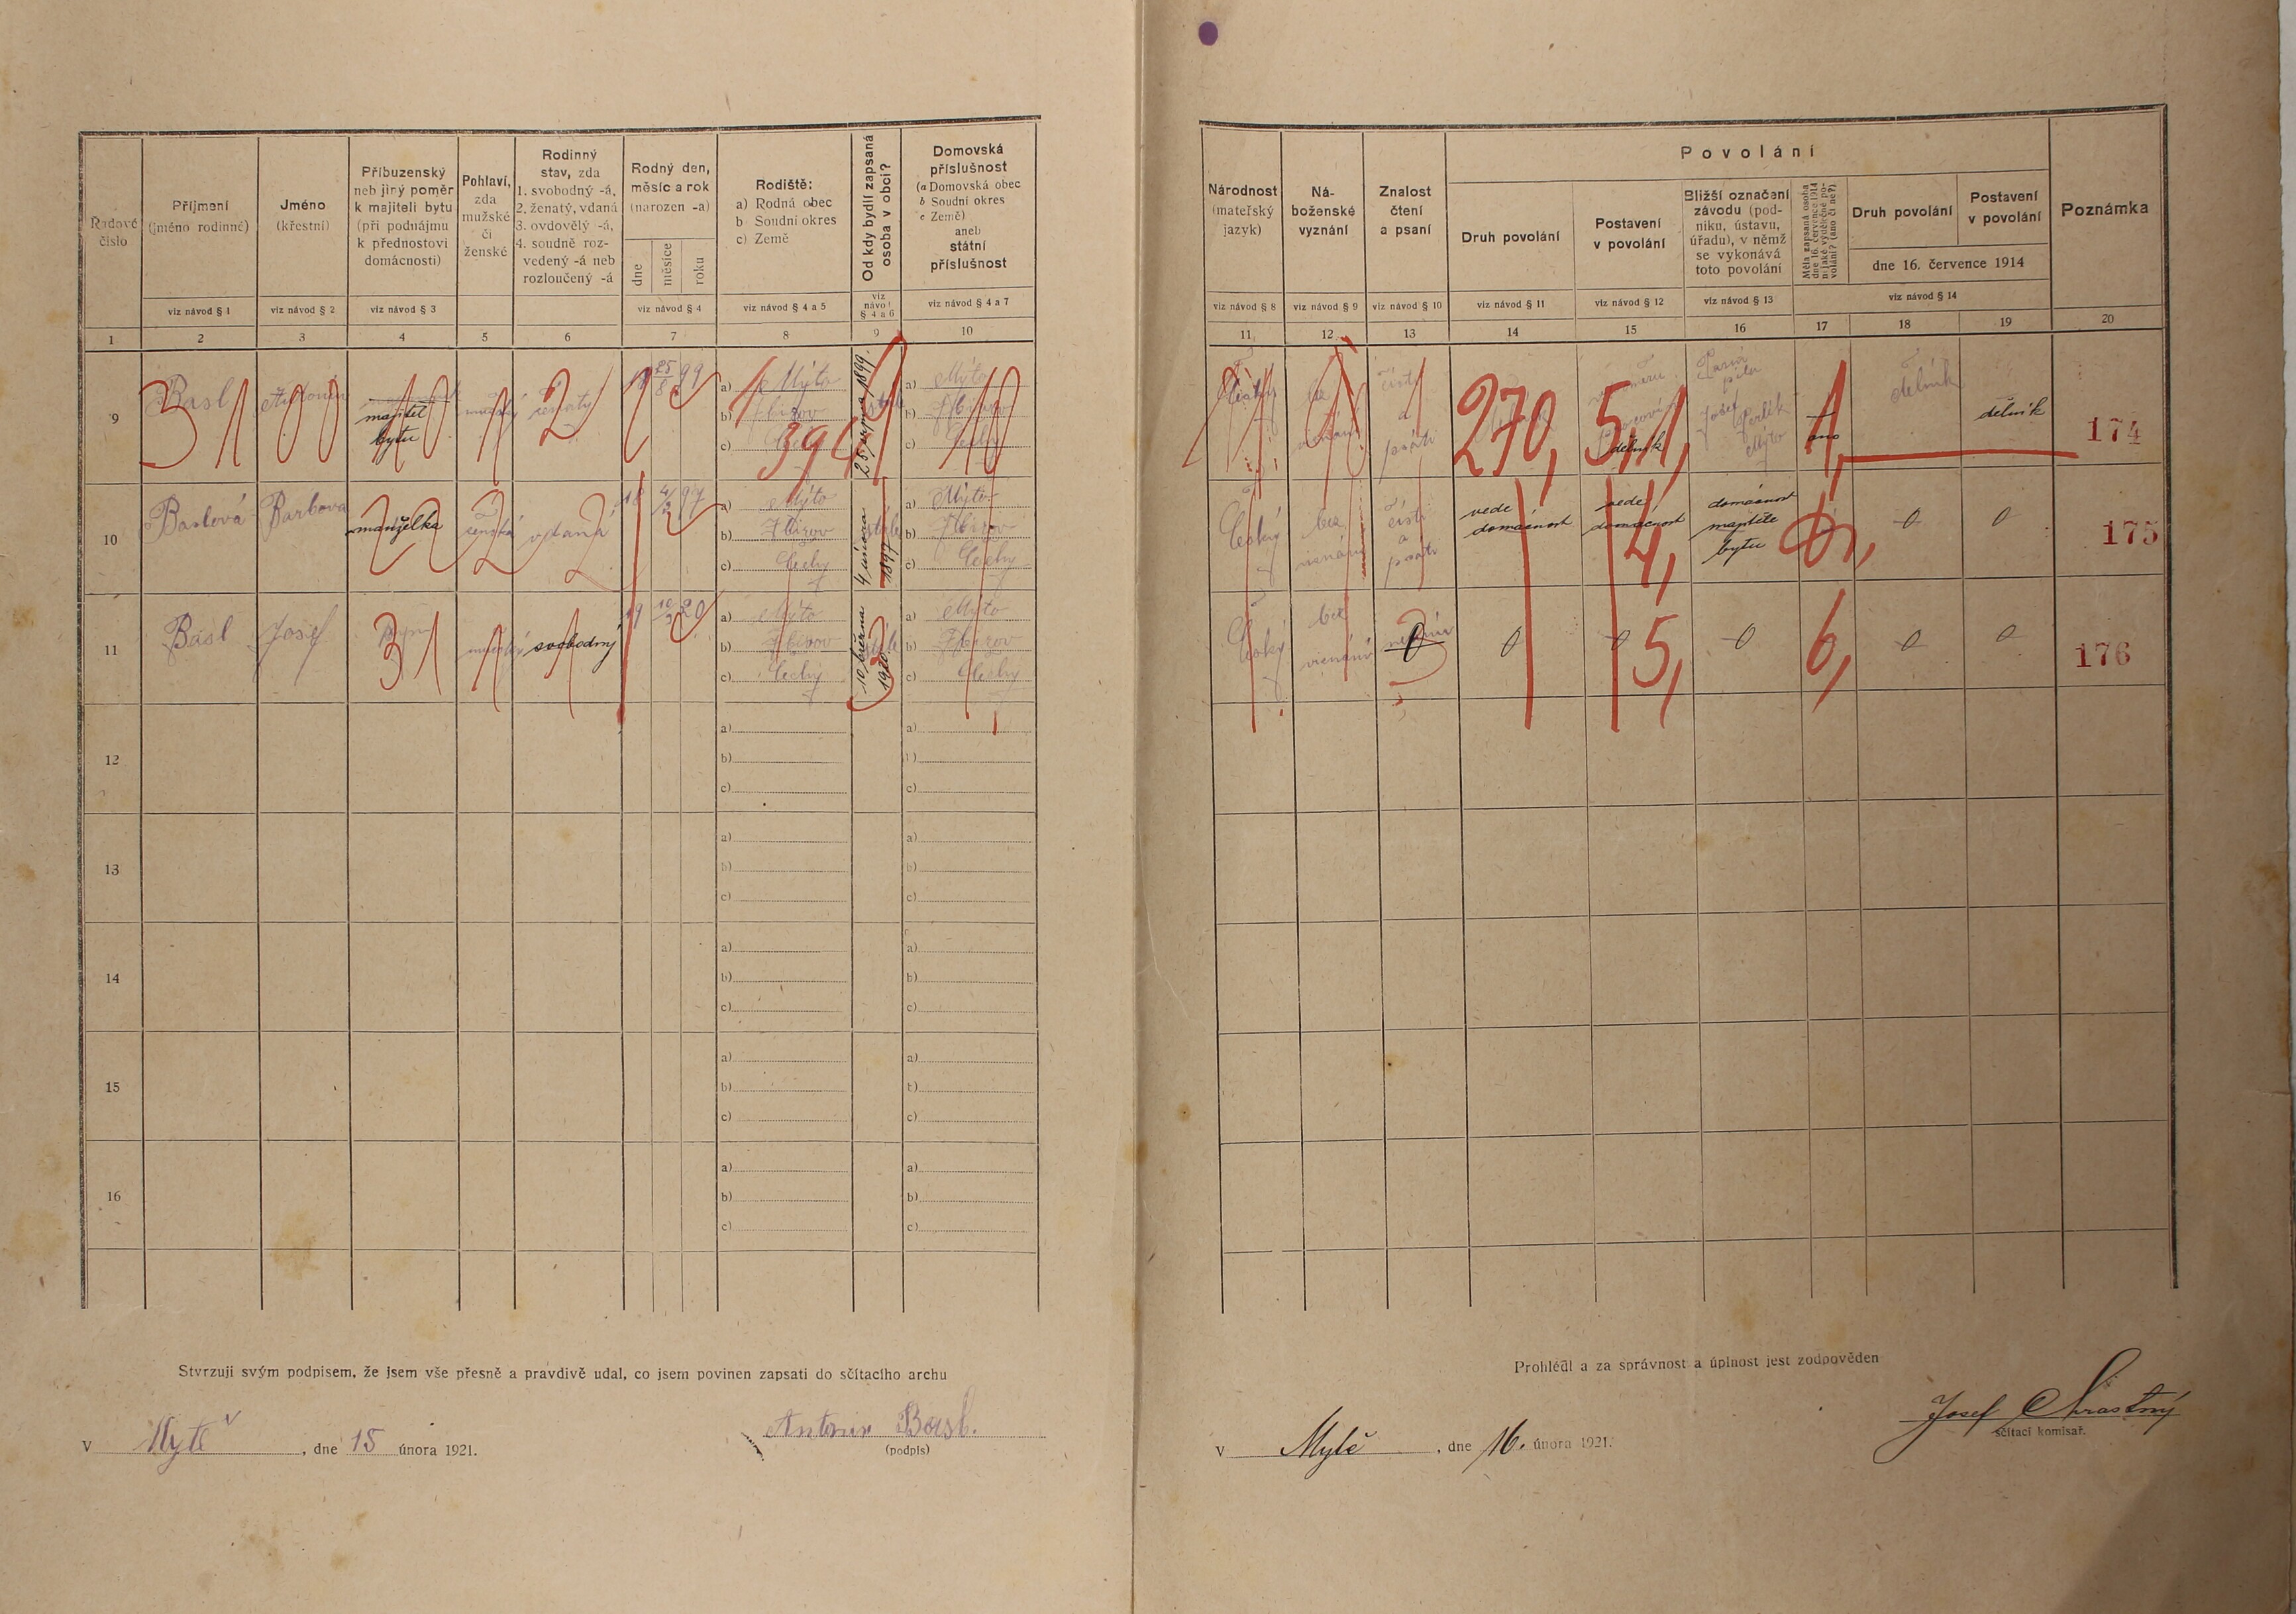 Řadové číslo
Příjmení
(jméno rodinné)
viz návod § 1
Jméno
(křestní)
viz návod § 2
Příbuzenský
neb jiný poměr
k majiteli bytu
(při podnájmu
k přednostovi
domácnosti)
viz návod § 3
Pohlaví,
zda
mužské
či
ženské
Rodinný
stav, zda
1. svobodný -á,
2. ženatý, vdaná
3. ovdovělý -á,
4. soudně roz-
vedený -á neb
rozloučený -á
Rodný den,
měsíc a rok
(narozen -a)
dne
měsíce
roku
viz návod § 4
Rodiště:
a) Rodná obec
b Soudní okres
c) Země
viz návod § 4 a 5
Od kdy bydlí zapsaná
osoba v obci?
viz
návod
§ 4 a 6
Domovská
příslušnost
(a Domovská obec
b Soudní okres
c Země)
aneb
státní
příslušnost
viz návod § 4 a 7
1 2 3 4 5 6 7 8 9 10
Národnost
(mateřský
jazyk)
viz návod § 8
Ná-
boženské
vyznání
viz návod § 9
Znalost
čtení
a psaní
viz návod § 10
Povolání
Druh povolání
viz návod § 11
Postavení
v povolání
viz návod § 12
Bližší označení
závodu (pod-
niku, ústavu,
úřadu), v němž
se vykonává
toto povolání
viz návod § 13
Měla zapsaná osoba
dne 16. července 1914
nějaké výdělečné po-
volání? (ano či ne?)
Druh povolání
Postavení
v povolání
dne 16. července 1914
viz návod § 14
Poznámka
11 12 13 14 15 16 17 18 19 20
9
Basl
Antonín
majitel
bytu
ženatý
18 25/8 99
a) Mýto
b) Zbirov
c)
25 srpna 1899
a) Mýto
b) Zbirov
c) Čechy
31 00 10 1 2 1
394
10
český
čísti
a
psáti
270, 5, 1,
dělník
Josef
Mýto
1,
ano
dělník
dělník
174
10
Baslová
Barbora
manželka
ženská
vdaná
18 4/2 97
a) Mýto
b) Zbirov
c) Čechy
4 února
1897
a) Mýto
b) Zbirov
c) Čechy
22 2 2
český
bez
vyznání
čísti
a
psáti
vede
domácnost
vede
domácnost
4,
domácnost
majitele
bytu
0 0
175
11
Basl
Josef
svobodný
19 10/3 20
a) Mýto
b) Zbirov
c) Čechy
10 března
1920
a) Mýto
b) Zbirov
c) Čechy
31 1 1
český
bez
vyznání
0
0
0
5,
0
6,
0
0
176
12
a)
b)
c)
a)
b)
c)
13
a)
b)
c)
a)
b)
c)
14
a)
b)
c)
a)
b)
c)
15
a)
b)
c)
a)
b)
c)
16
a)
b)
c)
a)
b)
c)
Stvrzuji svým podpisem, že jsem vše přesně a pravdivě udal, co jsem povinen zapsati do sčítacího archu
v Mýtě, dne 15 února 1921.
Antonín Basl.
(podpis)
Prohlédl a za správnost a úplnost jest zodpověden
v Mýtě, dne 16. února 1921.
Josef Chrastný
sčítací komisař.